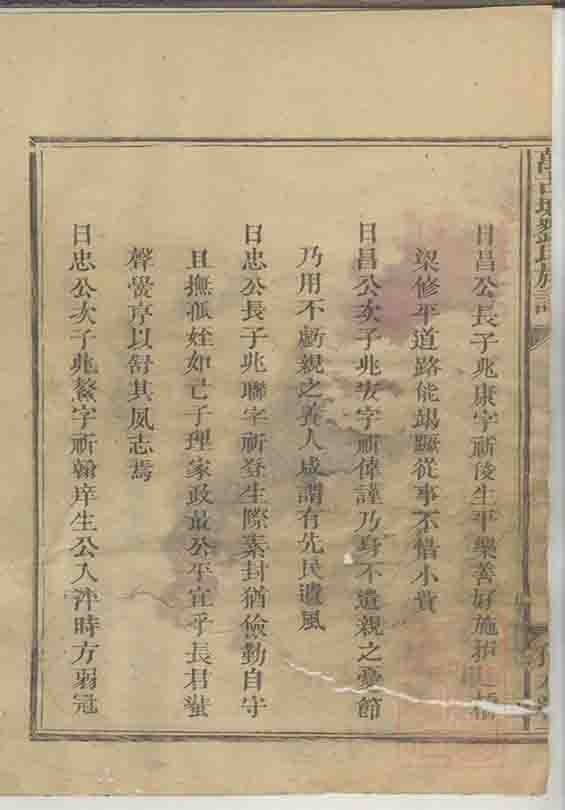 劉氏族譜
日昌公長子兆康字祈後生平樂善好施拓橋
梁修平道路能竭蹶從事不惜小費
日昌公次子兆安字祈偉謹乃身不遺親之憂節
乃用不虧親之養人咸謂有先民遺風
日忠公長子兆聯字祈登生際素封猶儉勤自守
且撫孤姪如己子理家政最公平宜乎長君蜚
聲黌序以舒其夙志焉
日忠公次子兆鰲字祈翰庠生公入泮時方弱冠